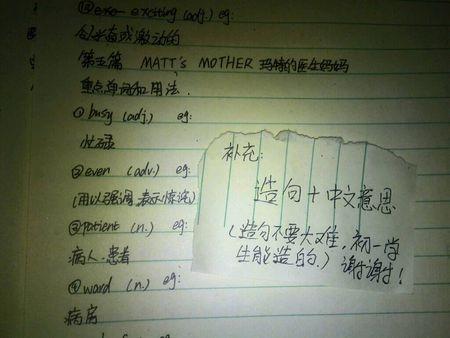 exciting (adj.) eg:
令兴奋或激动的
第五篇 MATT's MOTHER 玛特的医生妈妈
重点单词和用法.
①busy (adj.) eg:
忙碌
②even (adv.) eg:
(用以强调,表示惊讶)
③patient (n.) eg:
病人.患者
④ward (n.) eg:
病房
补充:
造句+中文意思
(造句不要太难,初一学
生能造的.) 谢谢!